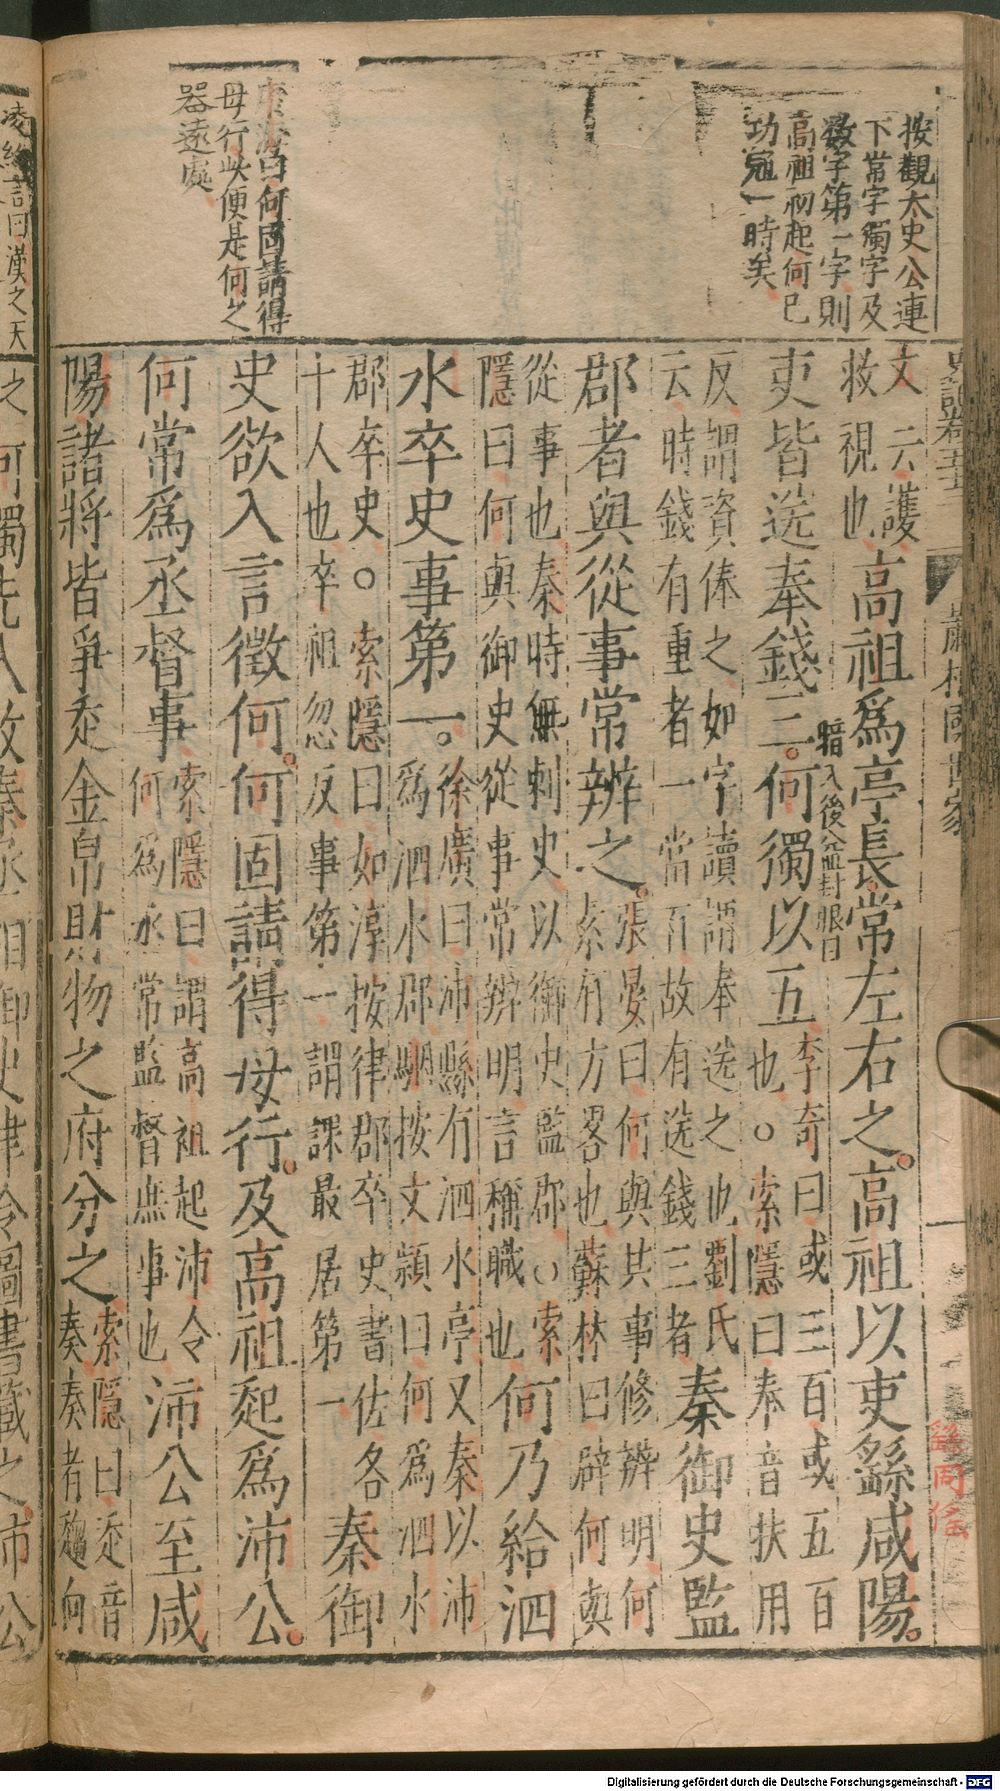 按觀太史公連
下常字獨字及
數字第一字則
高祖初起何已
功冠一時矣
曰何固請得
毋行此便是何之
器遠處
文云護
救視也
高祖爲亭長常左右之高祖以吏繇咸陽
繇同徭
暗入後益封眼目
吏皆送奉錢三何獨以五
李奇曰或三百或五百
也○索隱曰奉音扶用
反謂資俸之如字讀謂奉送之也劉氏
云時錢有重者一當百故有送錢三者
秦御史監
郡者與從事常辨之
張晏曰何與其事修辨明何
素有方畧也蘇林曰辟何與
從事也秦時無刺史以御史監郡○索
隱曰何與御史從事常辨明言稱職也
何乃給泗
水卒史事第一
徐廣曰沛縣有泗水亭又秦以沛
爲泗水郡駰按文穎曰何爲泗水
郡卒史○索隱曰如淳按律郡卒史書佐各
十人也卒祖忽反事第一謂課最居第一
秦御
史欲入言徵何何固請得毋行及高祖起爲沛公
何常爲丞督事
索隱曰謂高祖起沛令
何爲丞常監督庶事也
沛公至咸
陽諸將皆爭走金帛財物之府分之
索隱曰走音
奏奏者趨向
凌約言曰漢之天
之何獨先入收秦丞相御史律令圖書藏之沛公
Digitalisierung gefördert durch die Deutsche Forschungsgemeinschaft - DFG